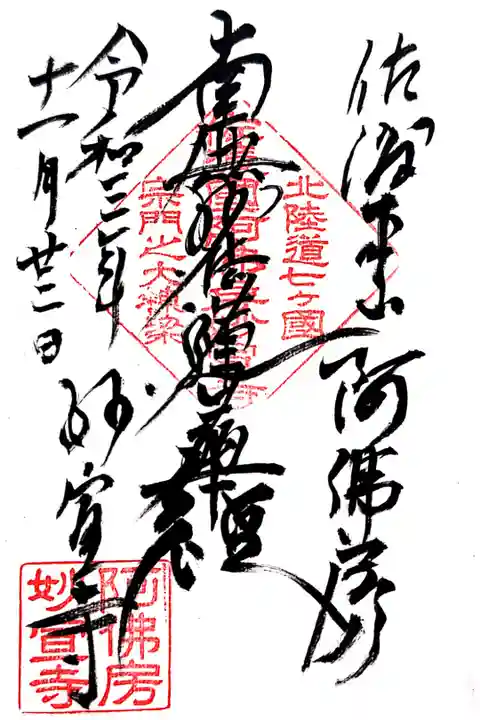 佐渡本山 阿佛房
南無妙法蓮華經
令和三年
十一月廿二日
妙宣寺
北陸道七ヶ國
宗門之大棟梁
阿佛房
妙宣寺